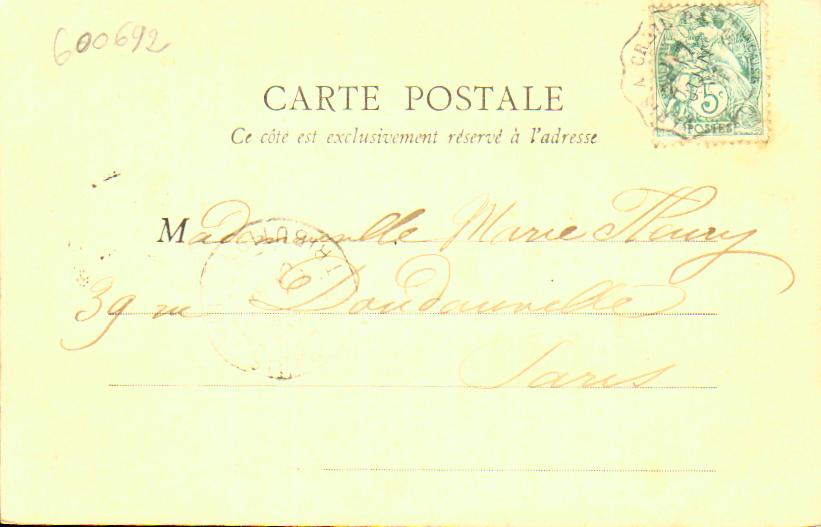 600692
CARTE POSTALE
Ce côté est exclusivement réservé à l'adresse
5c
POSTES
A CREIL
DISTRIBUTION
Mademoiselle Marie Fleury
39 rue Doudeauville
Paris